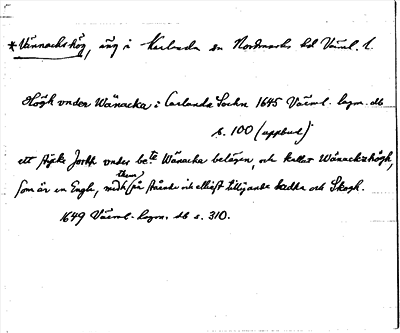 *Vännackshög, äng i Karlanda sn Nordmarks hd Värml. l.
Högh vnder Wänacka i Carlanda Sochn 1645 Värml. lagm. db
s. 100 (uppbud)
ett stycke Jordh vnder be:te Wänacka belägen, och kallat Wänackzhögh,
som är en Engh, medh (then) på stående och elliest tilliggande hadka och Skogh.
1649 Värml. lagm. db s. 310.